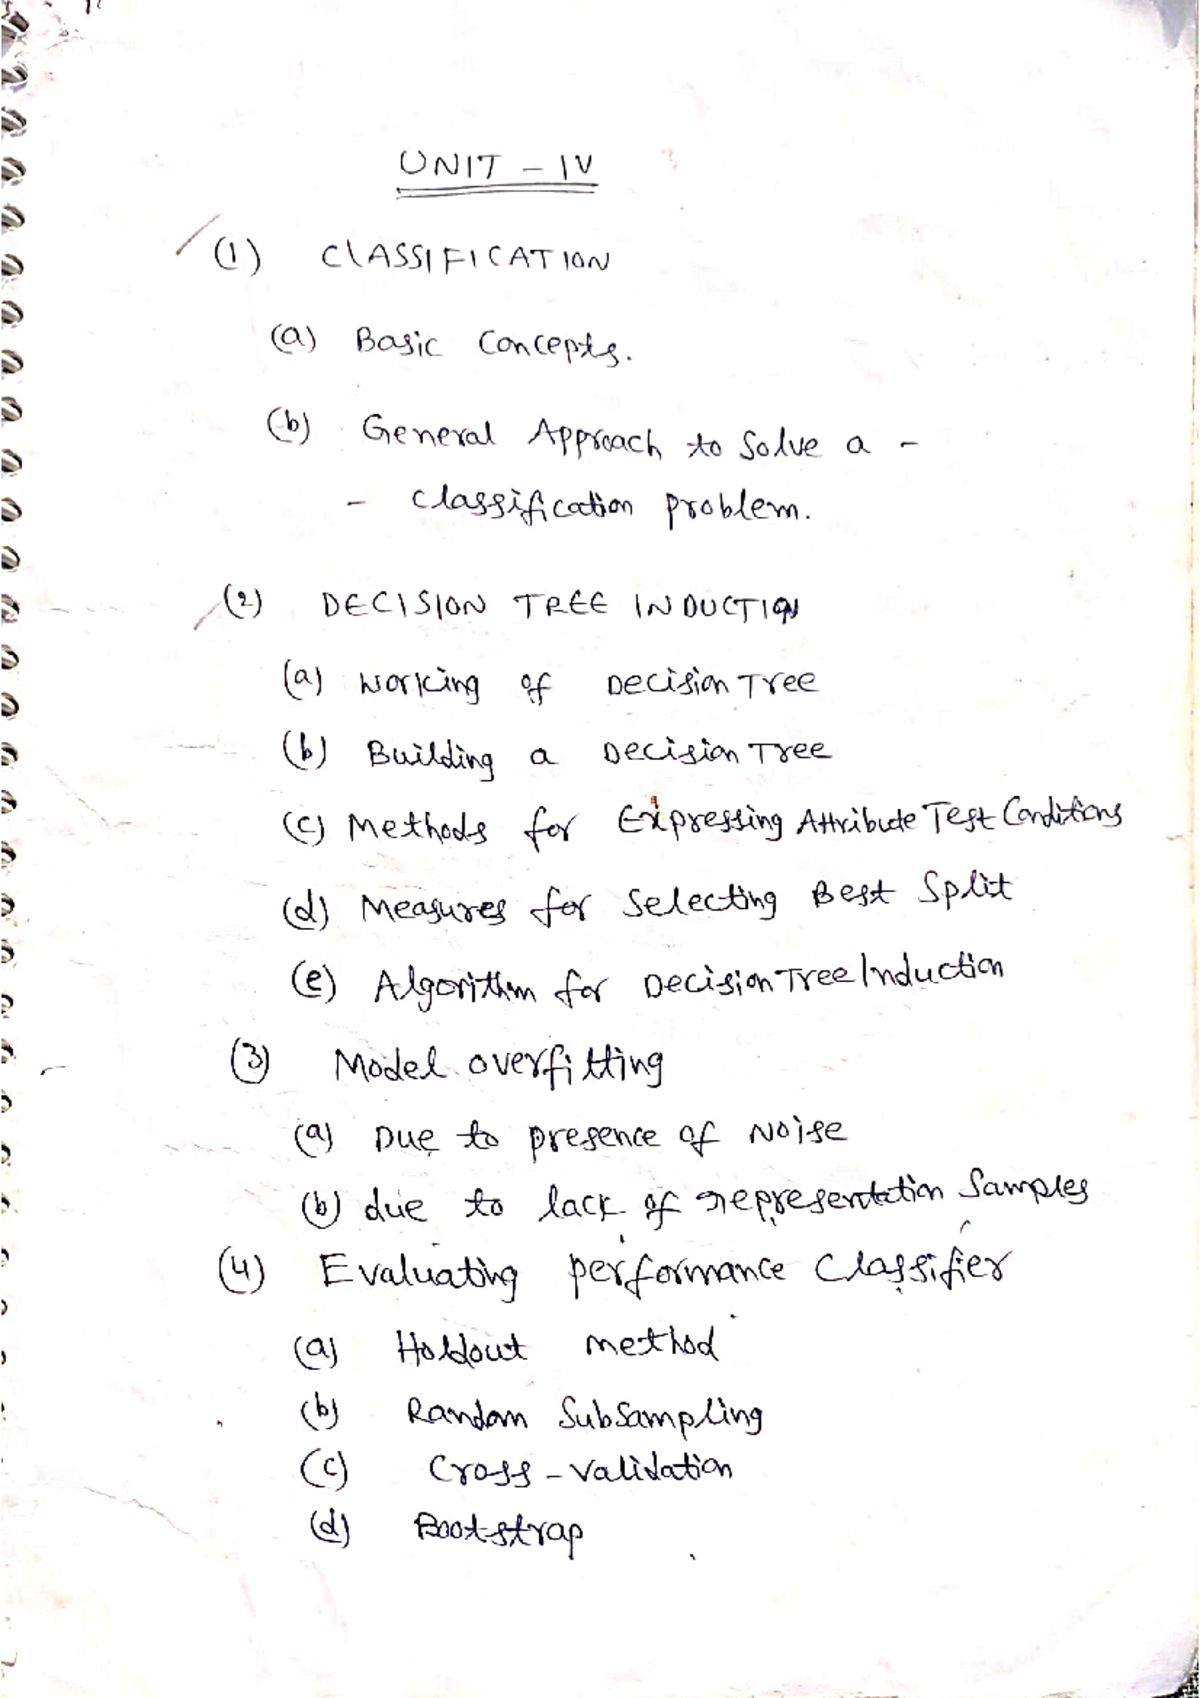 UNIT - IV
(1) ClASSIFICATION
(a) Basic Concepts.
(b) General Approach to Solve a -
- classification problem.
(2) DECISION TREE INDUCTION
(a) Working of Decision Tree
(b) Building a Decision Tree
(c) Methods for Expressing Attribute Test Conditions
(d) Measures for Selecting Best Split
(e) Algorithm for Decision Tree Induction
(3) Model overfitting
(a) Due to presence of Noise
(b) due to lack of representation Samples
(4) Evaluating performance Classifier
(a) Holdout method
(b) Random SubSampling
(c) Cross - Validation
(d) Bootstrap